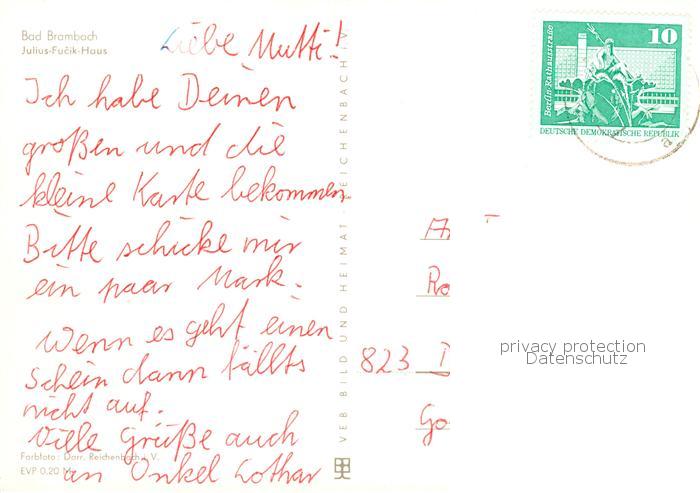 Bad Brambach
Julius-Fučik-Haus
Liebe Mutti!
Ich habe Deinen
großen und die
kleine Karte bekommen.
Bitte schicke mir
ein paar Mark.
Wenn es geht einen
Schein dann fällts
nicht auf.
Viele Grüße auch
an Onkel Lothar
Farbfoto: Darr, Reichenbach i. V.
EVP 0,20 M
VEB BILD UND HEIMAT · REICHENBACH i. V
10
Berlin, Rathausstraße
DEUTSCHE DEMOKRATISCHE REPUBLIK
823
privacy protection
Datenschutz